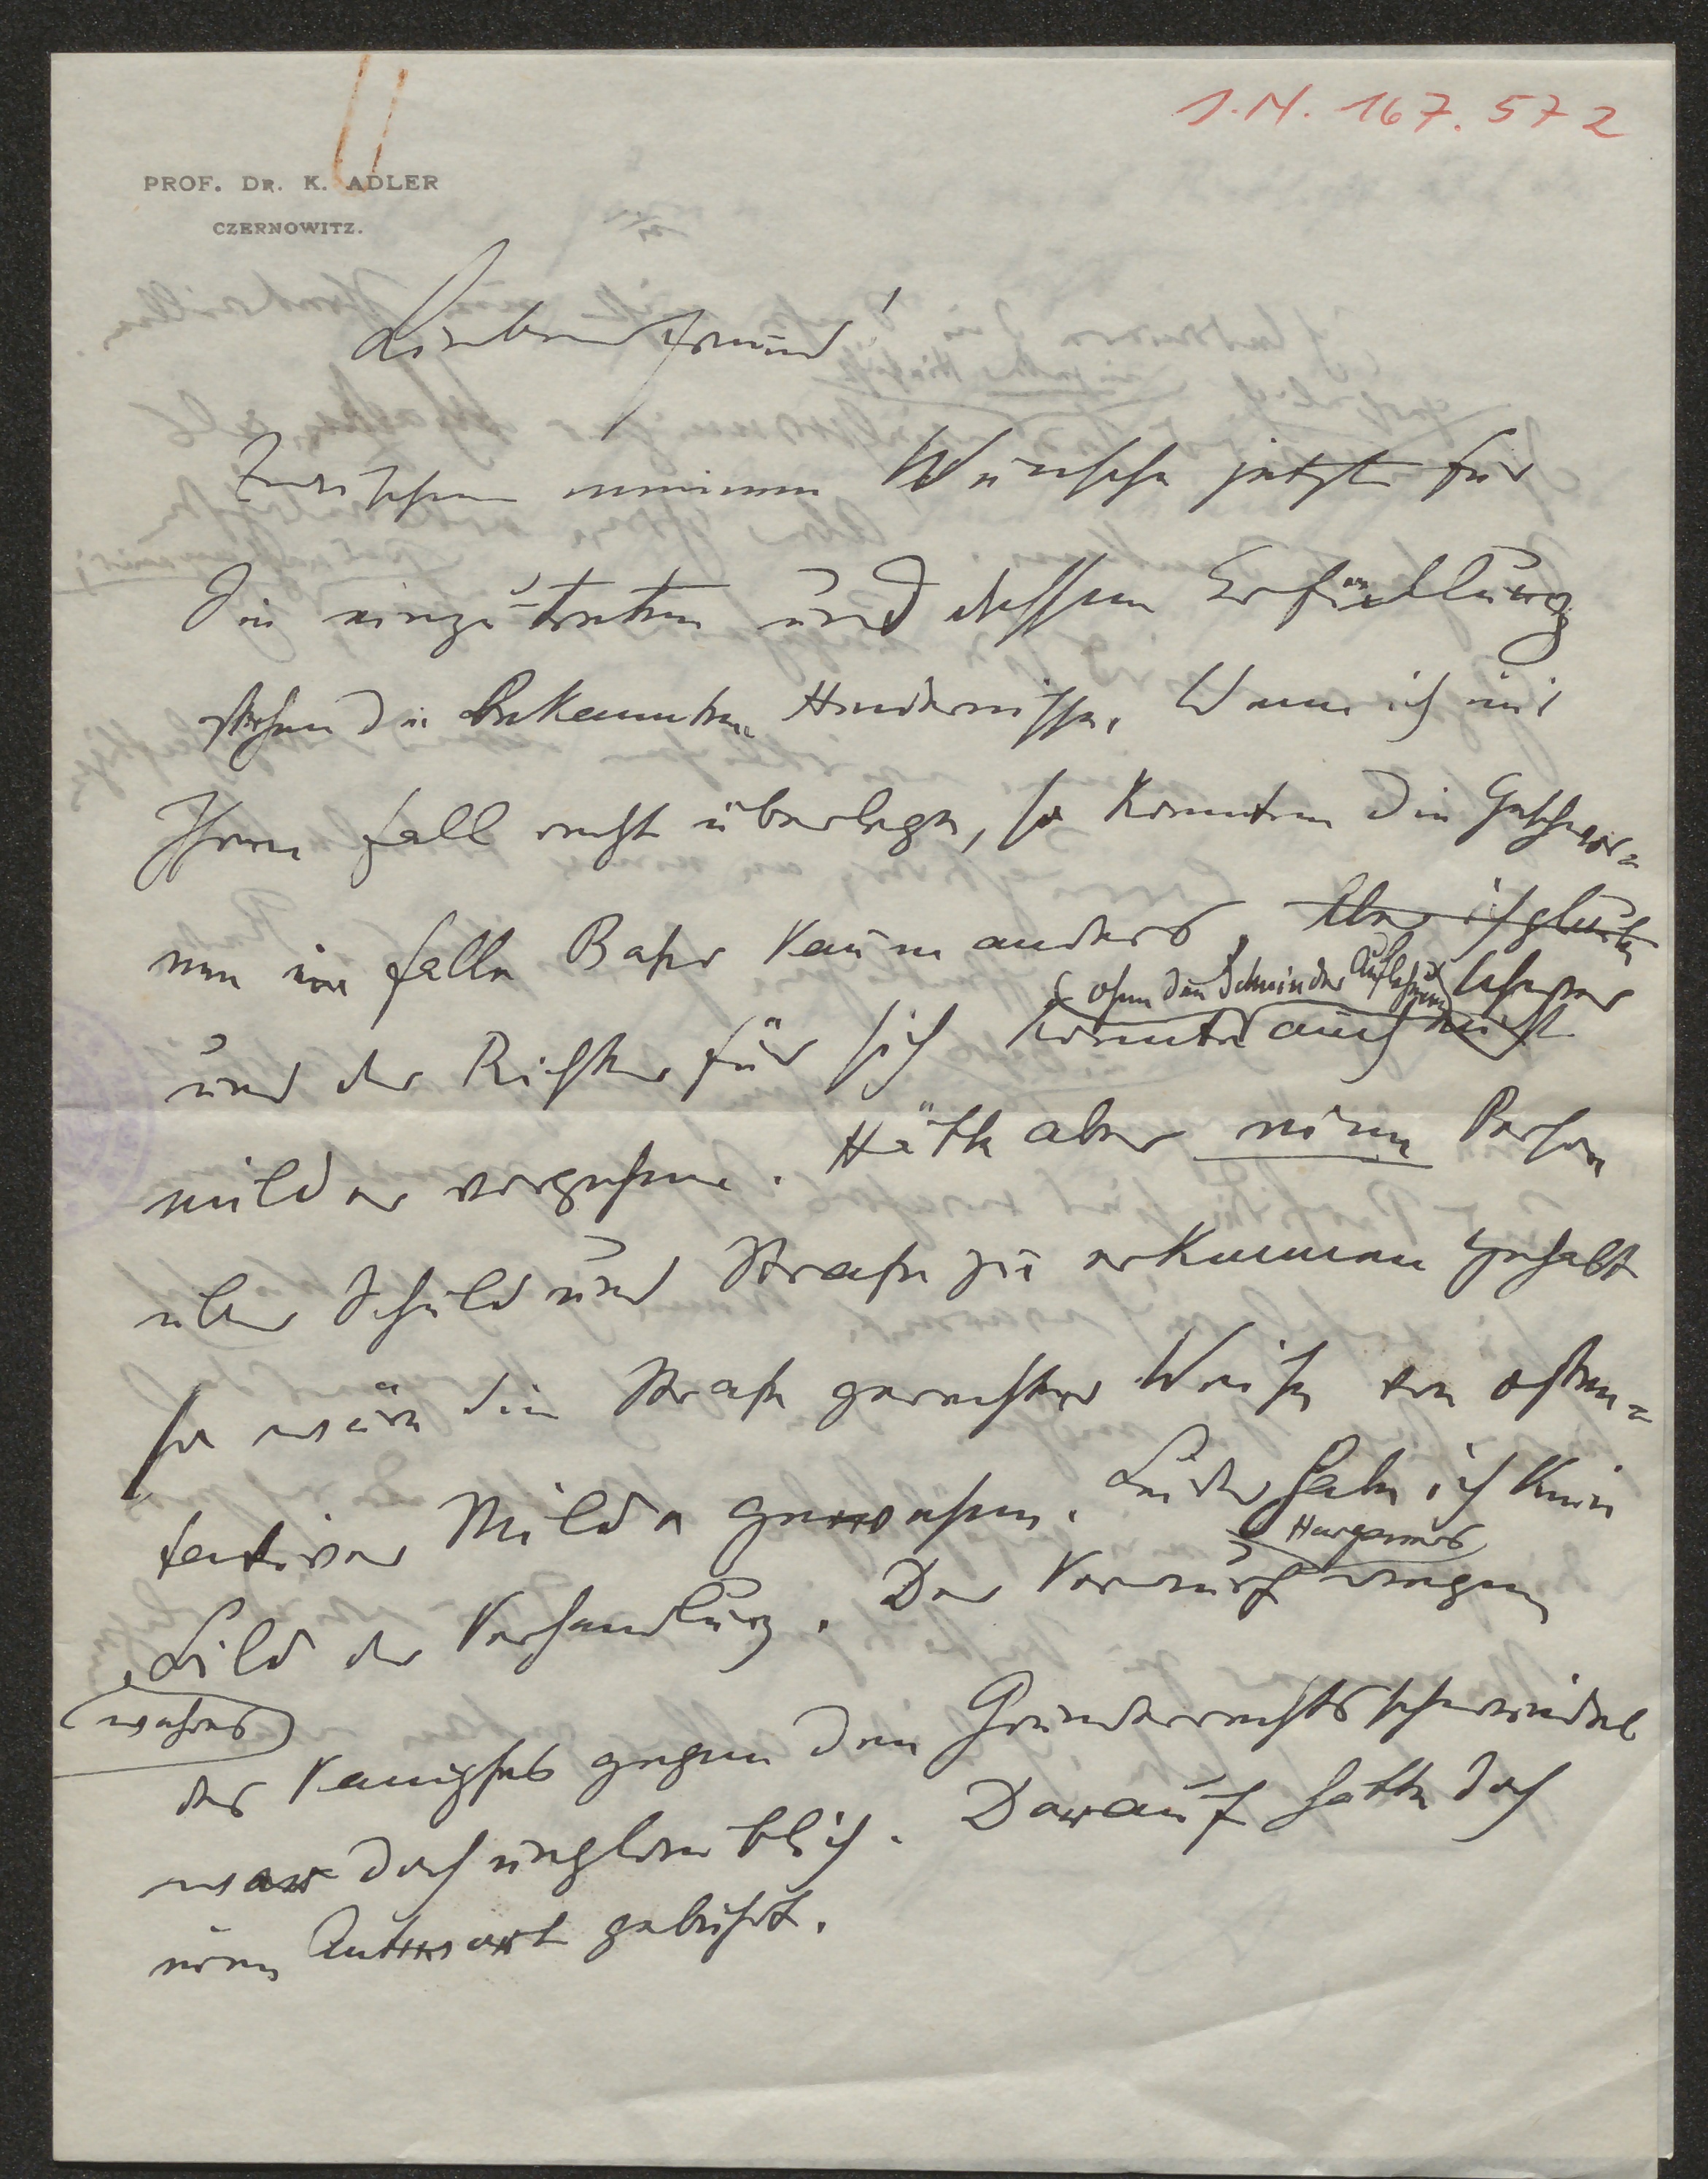 I.N. 167.572
PROF. DR. K. ADLER
CZERNOWITZ.
Lieber Freund!
Zwischen meinem Wunsche jetzt für
Sie einzutreten und dessen Erfüllung
stehen die bekannten Hindernisse. Wenn ich mir
Ihren Fall recht überlege, so konnten die Geschwor=
nen im Falle Bahr kaum anders. Aber ich glaube
ohne den Schein der
und der Richter für sich konnte auch nicht
milder vorgehen. Hätte aber eine Person
über Schuld und Strafe zu erkennen gehabt
so wäre die Strafe gerechter Weise von osten=
tativer Milde gewesen. Leider habe ich kein
Hargesheimers
Bild der Verhandlung. Der Vorwurf wegen
wahres
des Kampfes gegen den Gründerrechtsschwindel
war doch unglaublich. Darauf hätte doch
eine Antwort gebührt.